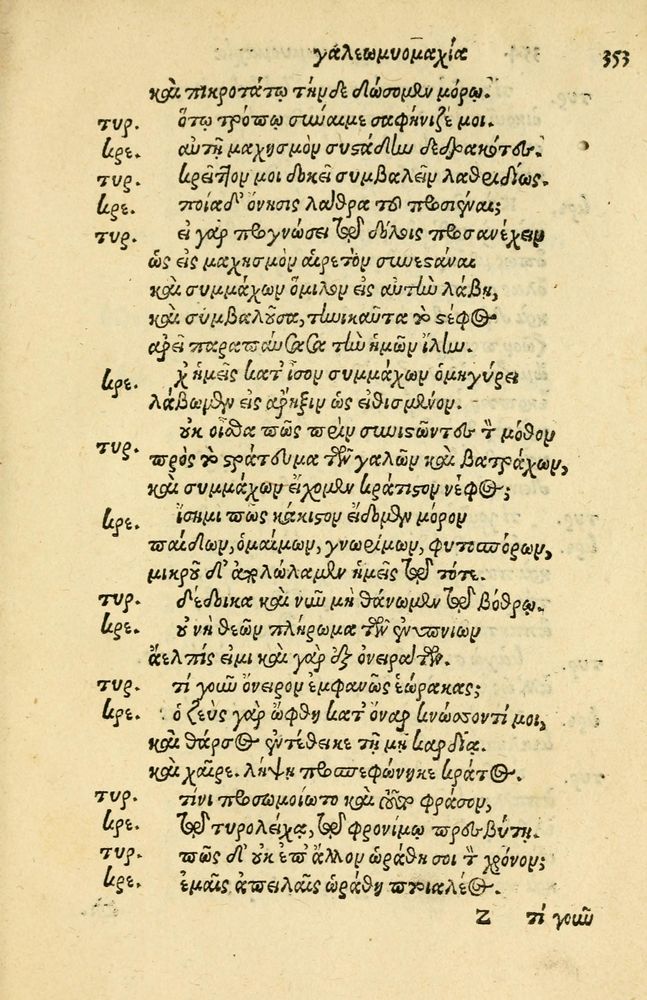 γαλεωμυομαχία 353
καὶ πικροτάτῳ τήνδε δώσομεν μόρῳ.
τυρ. ὅτῳ τρόπῳ σύναιμε σαφήνιζέ μοι.
κρε. αὐτῇ μαχησμὸν συστάδην δεδρακότες.
τυρ. κρεῖττον μοι δοκεῖ συμβαλεῖν λαθριδίως.
κρε. ποία δ' ὄνησις λάθρα τοι προσιέναι;
τυρ. εἰ γὰρ προγνώσει τοῦ δόλοις προσανέχειν
ὡς εἰς μαχησμὸν αἱρετὸν συνεστάναι
καὶ συμμάχων ὅμιλον εἰς αὐτὴν λάβῃ,
καὶ συμβαλοῦσα, τηνικαῦτα τὸ στέφος
ἀρεῖ παραπάντα τὰ τὴν ἡμῶν ἴλην.
κρε. χ' ἡμεῖς κατ' ἴσον συμμάχων ὁμηγύρει
λάβωμεν εἰς ἄρηξιν ὡς εἰθισμένον.
τυρ. οὐκ οἶσθα πῶς πρὶν συνιστῶντες τὸν μόθον
πρὸς τὸ στράτευμα τῶν γαλῶν καὶ βατράχων,
καὶ συμμάχων εἴχομεν κράτιστον νέφος;
κρε. ἴσημι πῶς κάκιστον εἴδομεν μόρον
παίδων, ὁμαίμων, γνωρίμων, φυτοσπόρων,
μικροῦ δ' ἀπολώλαμεν ἡμεῖς τοῦ τότε.
τυρ. δέδοικα καὶ νῦν μὴ θάνωμεν τοῦ βόθρῳ.
κρε. οὐ νὴ θεῶν πλήρωμα τῶν ἐνυπνίων
ἄελπίς εἰμι καὶ γὰρ ἐξ ὀνειράτων.
τυρ. τί γοῦν ὄνειρον ἐμφανῶς ἑώρακας;
κρε. ὁ ζεὺς γὰρ ὤφθη κατ' ὄναρ κνώσσοντί μοι,
καὶ θάρσος ἐντέθεικε τῇ μῇ καρδίᾳ.
καὶ χαῖρε. λήψῃ προσπεφώνηκε κράτος.
τυρ. τίνι προσωμοίωτο καὶ τοῦτο φράσον,
κρε. τῷ τυρολείχᾳ, τῷ φρονίμῳ πρεσβύτῃ.
τυρ. πῶς δ' οὐκ ἐπ' ἄλλον ὡράθη σοι τὸν χρόνον;
κρε. ἐμαῖς ἀπειλαῖς ὡράθη πτοιαλέος.
Z τί γοῦν